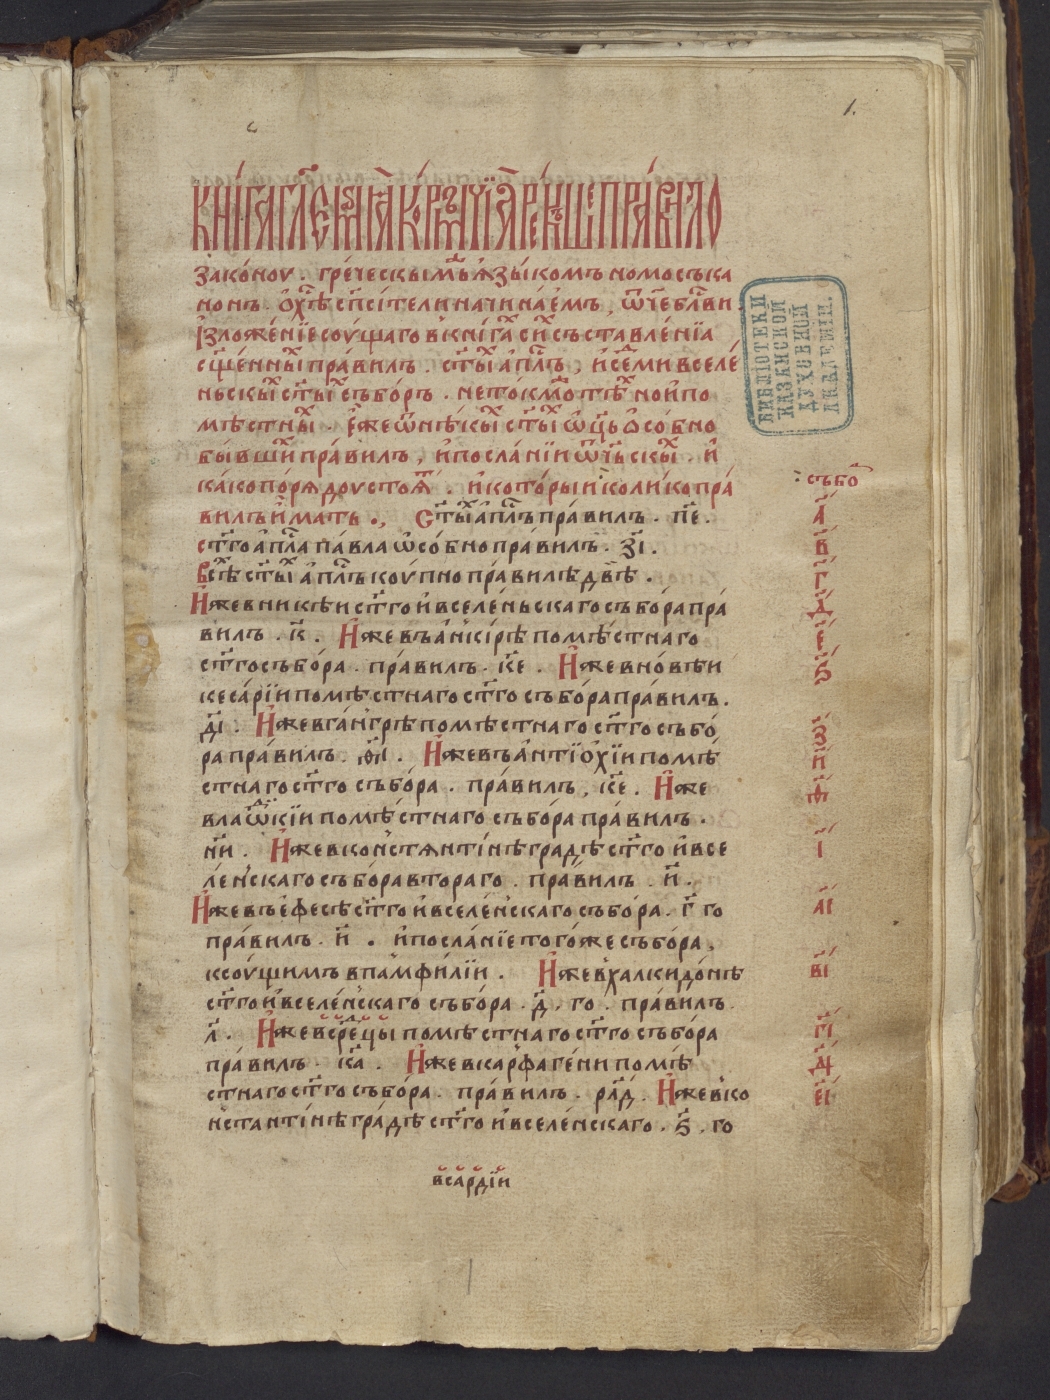 1.
КНИГА ГЛЕМАꙖ КОРМЧИꙖ РЕКШЕ ПРАВИЛО
закѡноу . греческымъ ꙗзыкомъ номосъка
нонъ .
ꙇзложенїе соущаго в книга сиⷯ съставленїа
сщ҃енныⷯ правилъ . ст҃ыⷯ ап҃лъ , и семи вселе
ньскыⷯ ст҃ыⷯ съборъ . не токмо тѣⷯ но и по
мѣстныⷯ . еже ѿ нѣкыⷯ ст҃ыⷯ ѡц҃ь ѡсобно
бывшиⷯ правилъ , и посланїи ѡч҃ьскыⷯ . и
како по рѧдоу стоѧⷮ . и которыи колико пра
вилъ имать . , Ст҃ыⷯ ап҃лъ правилъ . п҃е .
ст҃го ап҃ла павла ѡсобно правилъ . з҃ꙇ .
Всѣⷯ ст҃ыⷯ ап҃лъ коупно правилѣ двѣ .
Иже в никѣи ст҃го и вселеньскаго събора пра
вилъ . к҃ . Иже въ анкирѣ помѣстнаго
ст҃го събора . правилъ . к҃е . Иже в новѣи
кесарїи помѣстнаго ст҃го събора правилъ .
д҃ꙇ . Иже в гангрѣ помѣстнаго ст҃го събо
ра правилъ . ѳ҃ꙇ . Иже въ антїохїи помѣ
стнаго ст҃го събора . правилъ , к҃е . Иже
в лаѡдїкїи помѣстнаго събора правилъ .
н҃и . Иже в констѧнтинѣ градѣ ст҃го и все
ленскаго събора втораго . правилъ . и҃ .
Иже въ ефесѣ ст҃го и вселенскаго събора . г҃ го
правилъ . и҃ . и посланїе того же събора ,
к соущимъ в памфилїи . Иже в халкидонѣ
ст҃го и вселенскаго събора . д҃ . го . правилъ .
л҃ . Иже в среⷣцы помѣстнаго ст҃го събора
правилъ . к҃а . Иже в карфагени помѣ
стнаго ст҃го събора . правилъ . рл҃д . Иже в ко
нстантинѣ градѣ ст҃го и вселенскаго . ѕ҃ . го
в сардїи
съборⷪ
а҃
в҃
г҃
д҃
е҃
ѕ҃
з҃
и҃
ѳ҃
ꙇ҃
аꙇ҃
вꙇ҃
гꙇ҃
дꙇ҃
еꙇ҃
БИБЛІОТЕКИ
КАЗАНСКОЙ
ДУХОВНОЙ
АКАДЕМІИ.